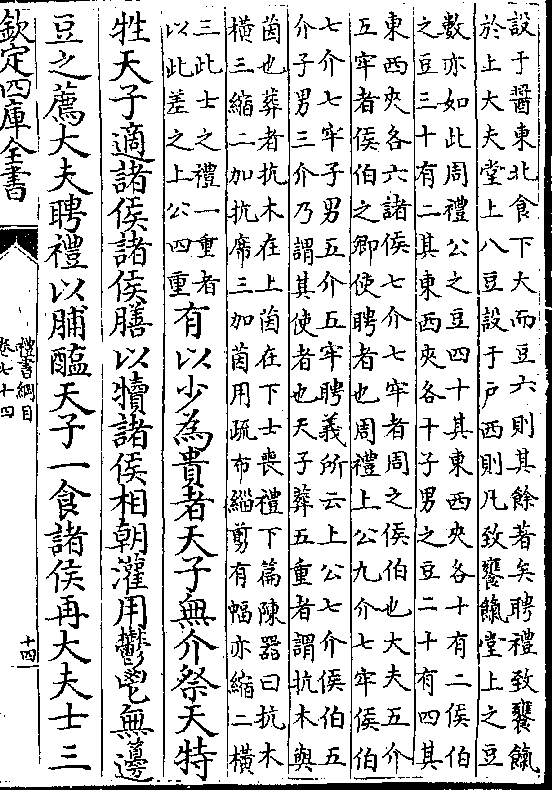 設于醬東北食下大而豆六則其餘著矣聘禮致饔餼
於上大夫堂上八豆設于戶西則凡致饔餼堂上之豆
數亦如此周禮公之豆四十其東西夾各十有二侯伯
之豆三十有二其東西夾各十子男之豆二十有四其
東西夾各六諸侯七介七牢者周之侯伯也大夫五介
五牢者侯伯之卿使聘者也周禮上公九介七牢侯伯
七介七牢子男五介五牢聘義所云上公七介侯伯五
介子男三介乃謂其使者也天子葬五重者謂抗木與
茵也葬者抗木在上茵在下士喪禮下篇陳器曰抗木
橫三縮二加抗席三加茵用疏布緇剪有幅亦縮二橫
三此士之禮一重者
以此差之上公四重
有以少為貴者天子無介祭天特
牲天子適諸侯諸侯膳以犢諸侯相朝灌用鬱鬯無籩
豆之薦大夫聘禮以脯醢天子一食諸侯再大夫士三
欽定四庫全書
禮書綱目
卷七十四
十四